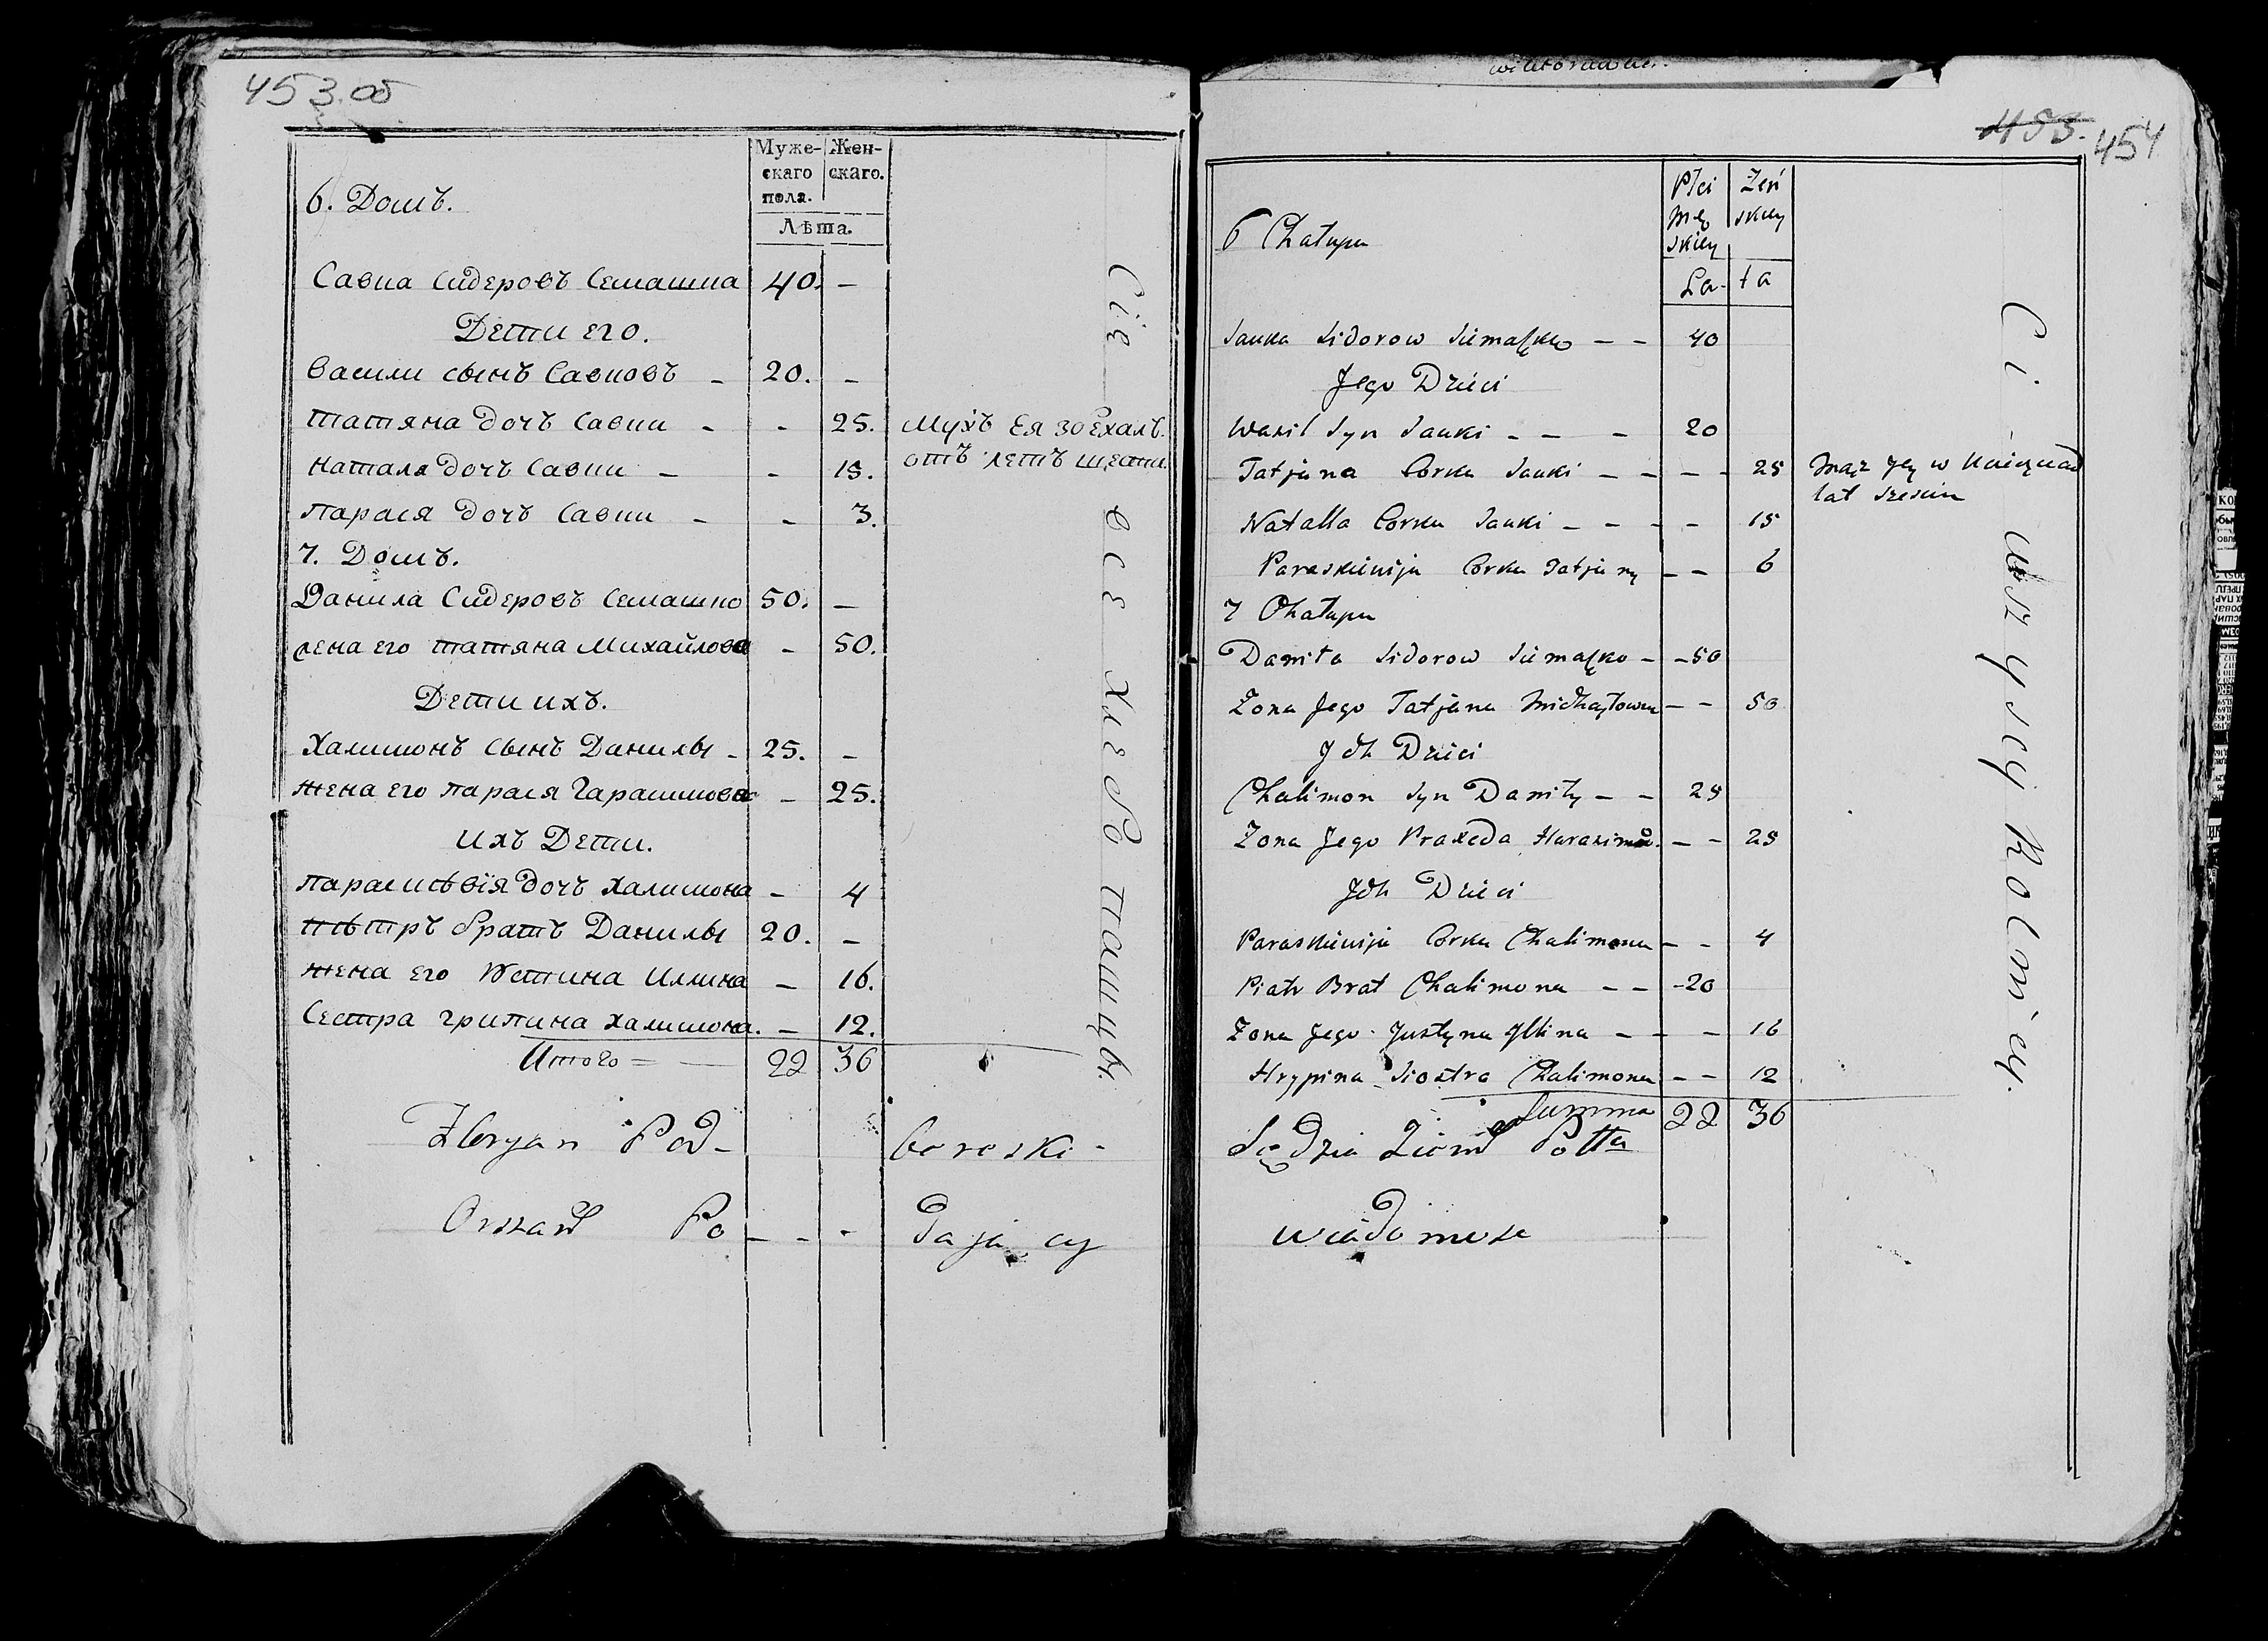 453.об
Муже- Жен-
скаго скаго.
пола.
Лѣта.
6. Домъ.
Савка Сидеровъ Семашка 40. –
Дети его.
Васили сынъ Савковъ – 20. –
Татяна дочъ Савки – – 25. Мужъ Ея зоехалъ.
Натала дочъ Савки – – 15. отъ летъ шести.
Парася дочъ Савки – – 3.
7. Домъ.
Данила Сидеровъ Семашко 50. –
жена его татяна Михайлова – 50.
Дети ихъ.
Халимонъ сынъ Данилы – 25. –
жена его парася Гарасимова – 25.
ихъ Дети.
параскѣвія дочъ халимона – 4
Пѣтръ братъ Данилы 20. –
жена его Юстина Илина – 16.
Сестра грипина халимона. – 12.
Итого = — 22 36
Floryan Pod- boreski -
Orszań Po – – - dający
Сіе все хлебопашцы.
453. 454
Płci Żeń
Mę skiey
skiey
La- ta
6 Chałupa
Sauka Sidorow Siemaszko – – 40
Jego Dzieci
Wasil Syn Sauki – – – 20
Tatjana Corka Sauki – – – – 25 Mąż Jey w
lat sześciu
Natalla Corka Sauki – – – – 15
Paraskiewija Corka Tatjany – – 6
7 Chałupa
Daniła Sidorow Siemaszko – – 50
Żona Jego Tatjana Michayłowa – – 50
Jch Dzieci
Chalimon Syn Daniły – – 25
Żona Jego Praxeda Harasimo. – – 25
Jch Dzieci
Paraskiewija Corka Chalimona – – 4
Piotr Brat Chalimona – – – 20
Żona Jego Justyna Jllina – – – 16
Hrypina Siostra Chalimona – – 12
Summa 22 36
Sędzia Ziem Potta
wiadomose
Ci wszyscy Rolnicy.